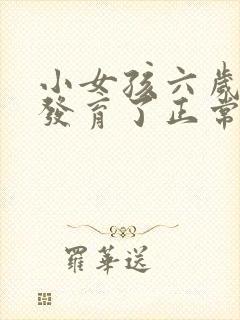 小女孩六歲
發育了正常
羅華送